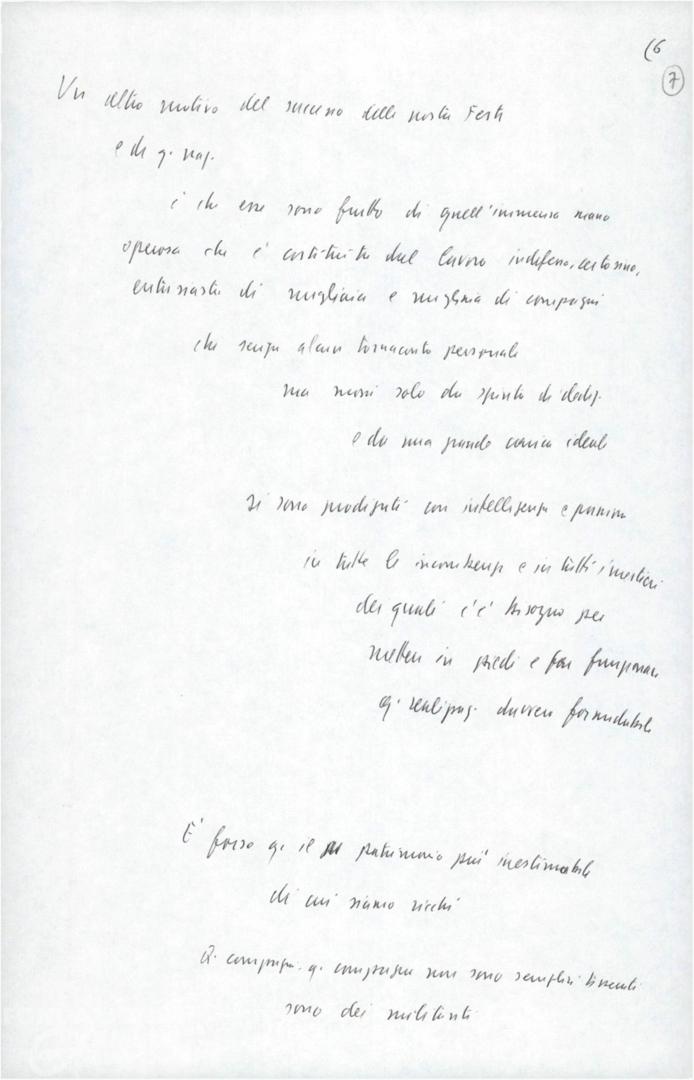 16
7
Un altro motivo del successo delle nostre Feste
e di q. naz.
è che esse sono frutto di quell'immensa mano
operosa che è costituita dal lavoro indefesso, certosino,
entusiasta di migliaia e migliaia di compagni
che senza alcun tornaconto personale
ma mossi solo da spirito di dediz.
e da una grande carica ideale
si sono prodigati con intelligenza e passione
in tutte le incombenze e in tutti i mestieri
dei quali c'è bisogno per
mettere in piedi e far funzionare
q. realizzaz. davvero formidabile
E' forse q. il patrimonio più inestimabile
di cui siamo ricchi
Q. compagni. q. compagne non sono semplici tesserati
sono dei militanti